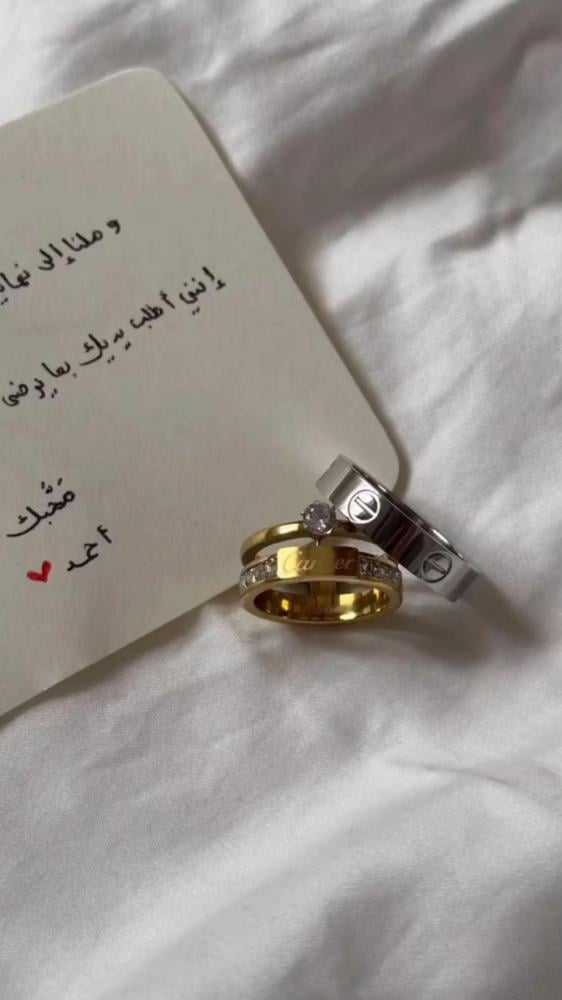 وصلنا إلى نهاي
إنني أطلب يديك بما يرضي
مُحبك
أحمد
Cartier